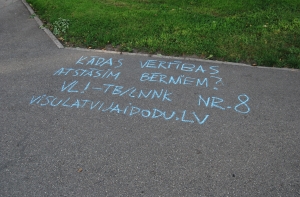 KĀDAS VĒRTĪBAS
ATSTĀSIM BĒRNIEM?
VL!-TB/LNNK NR.8
VISULATVIJAIDODU.LV